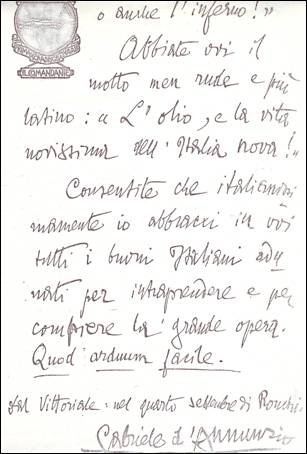 o anche l'inferno!"
IL COMANDANTE
Abbiate voi il
motto men rude e più
latino: « L'olio, e la vita
novissima dell'Italia nova!"
Consentite che italianissi
mamente io abbracci in voi
tutti i buoni Italiani adu
nati per intraprendere e per
compiere la grande opera.
Quod arduum facile.
Dal Vittoriale: nel quarto settembre di Ronchi.
Gabriele d'Annunzio